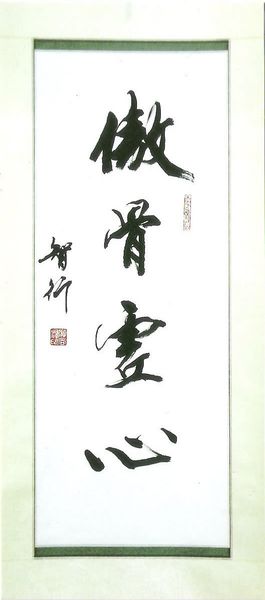 傲骨虚心
智行